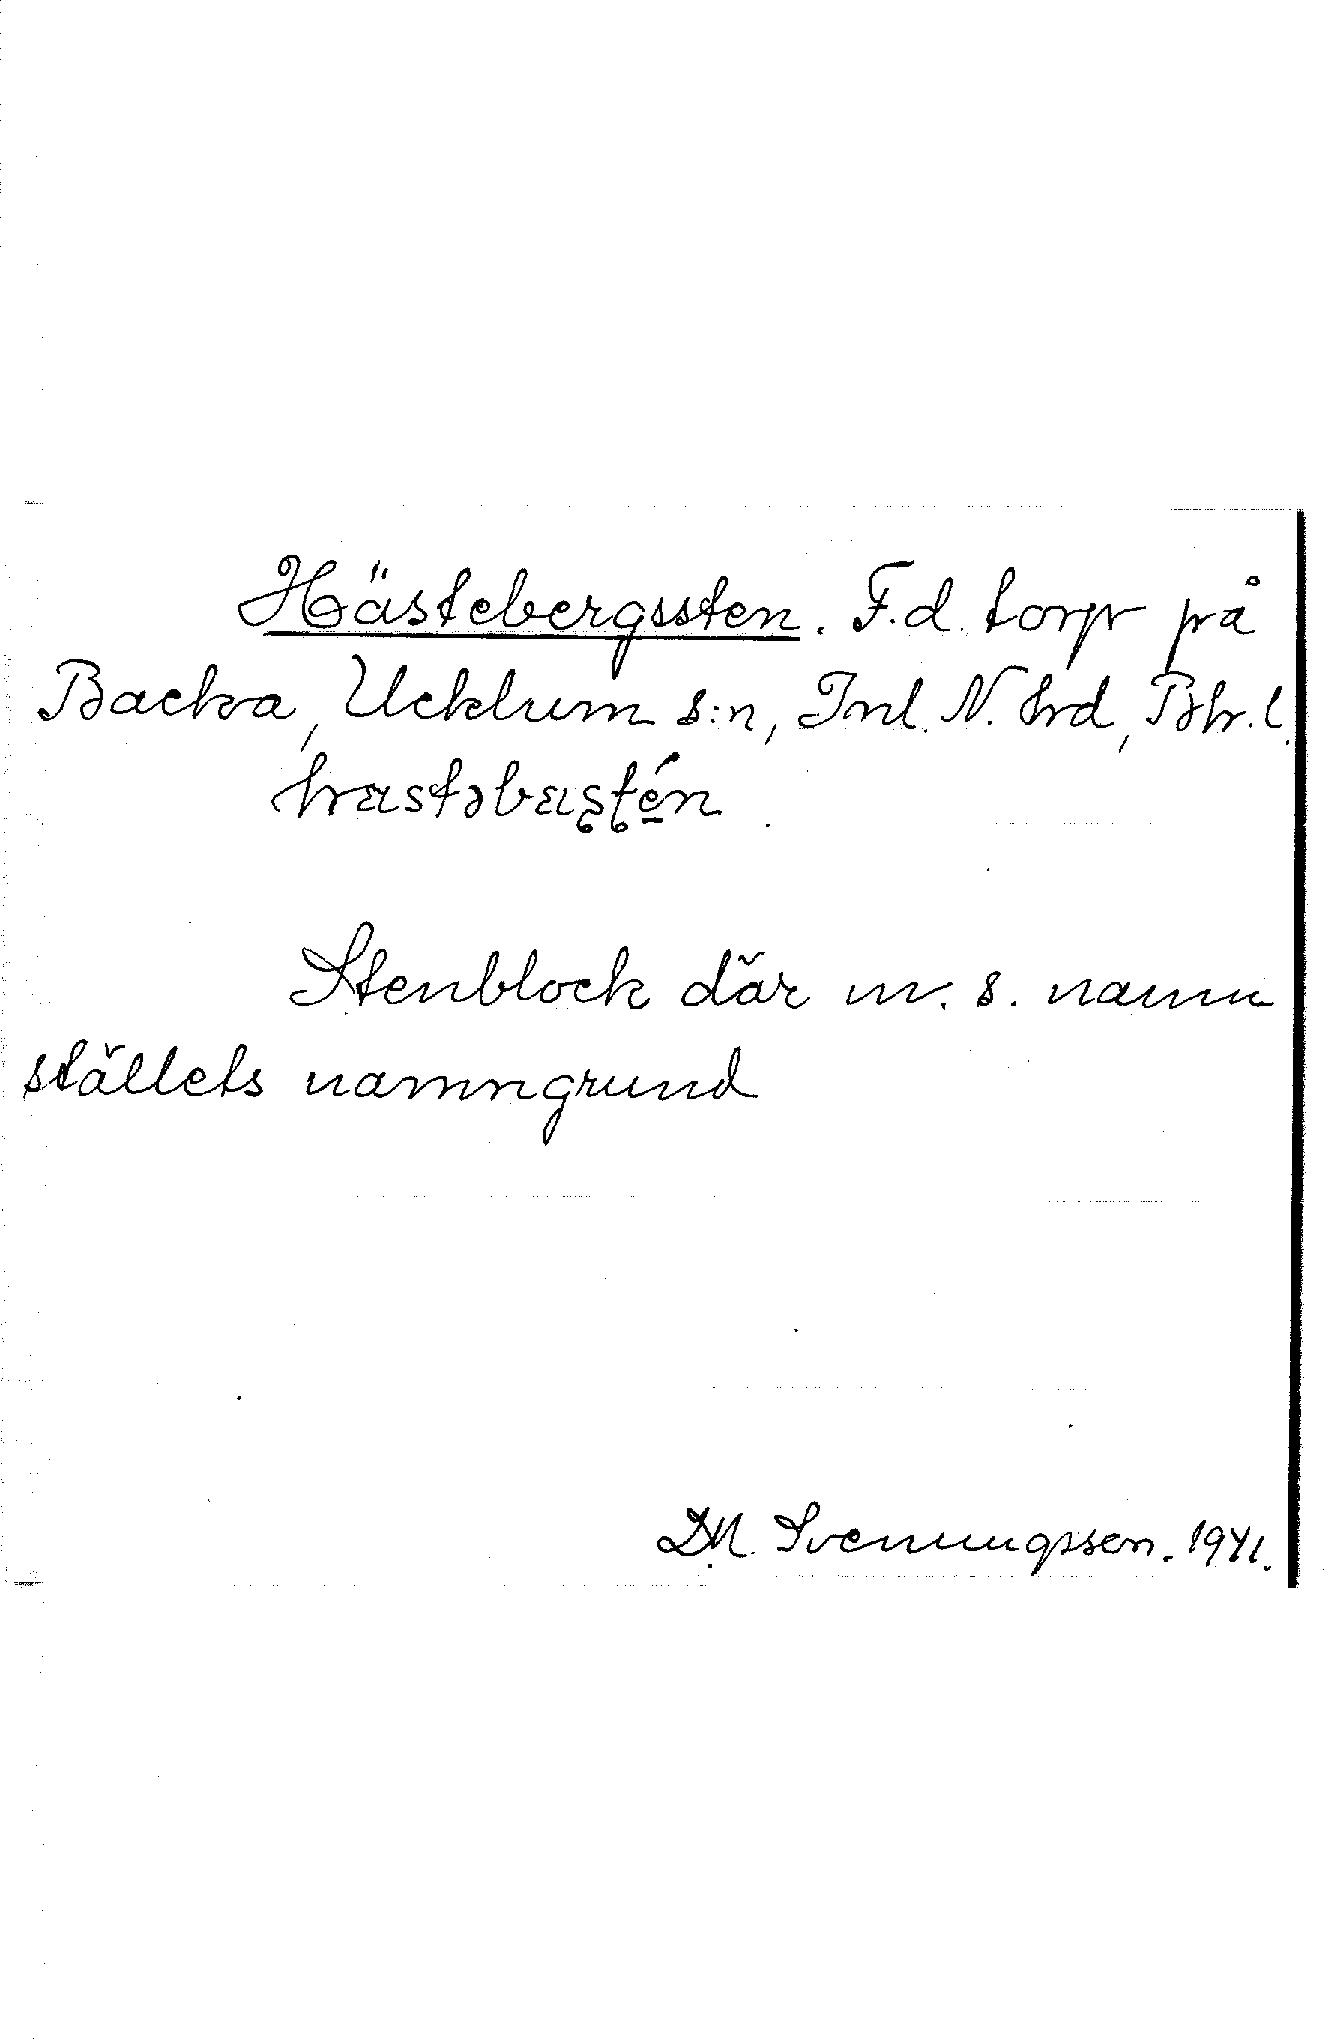 Hästebergssten. F.d. torp på
Backa, Ucklum s:n, Inl. N. hrd, Bhr. l.
hæstəbæʂʈén
Stenblock där m. s. namn
ställets namngrund
D.M. Svenungsson. 1941.